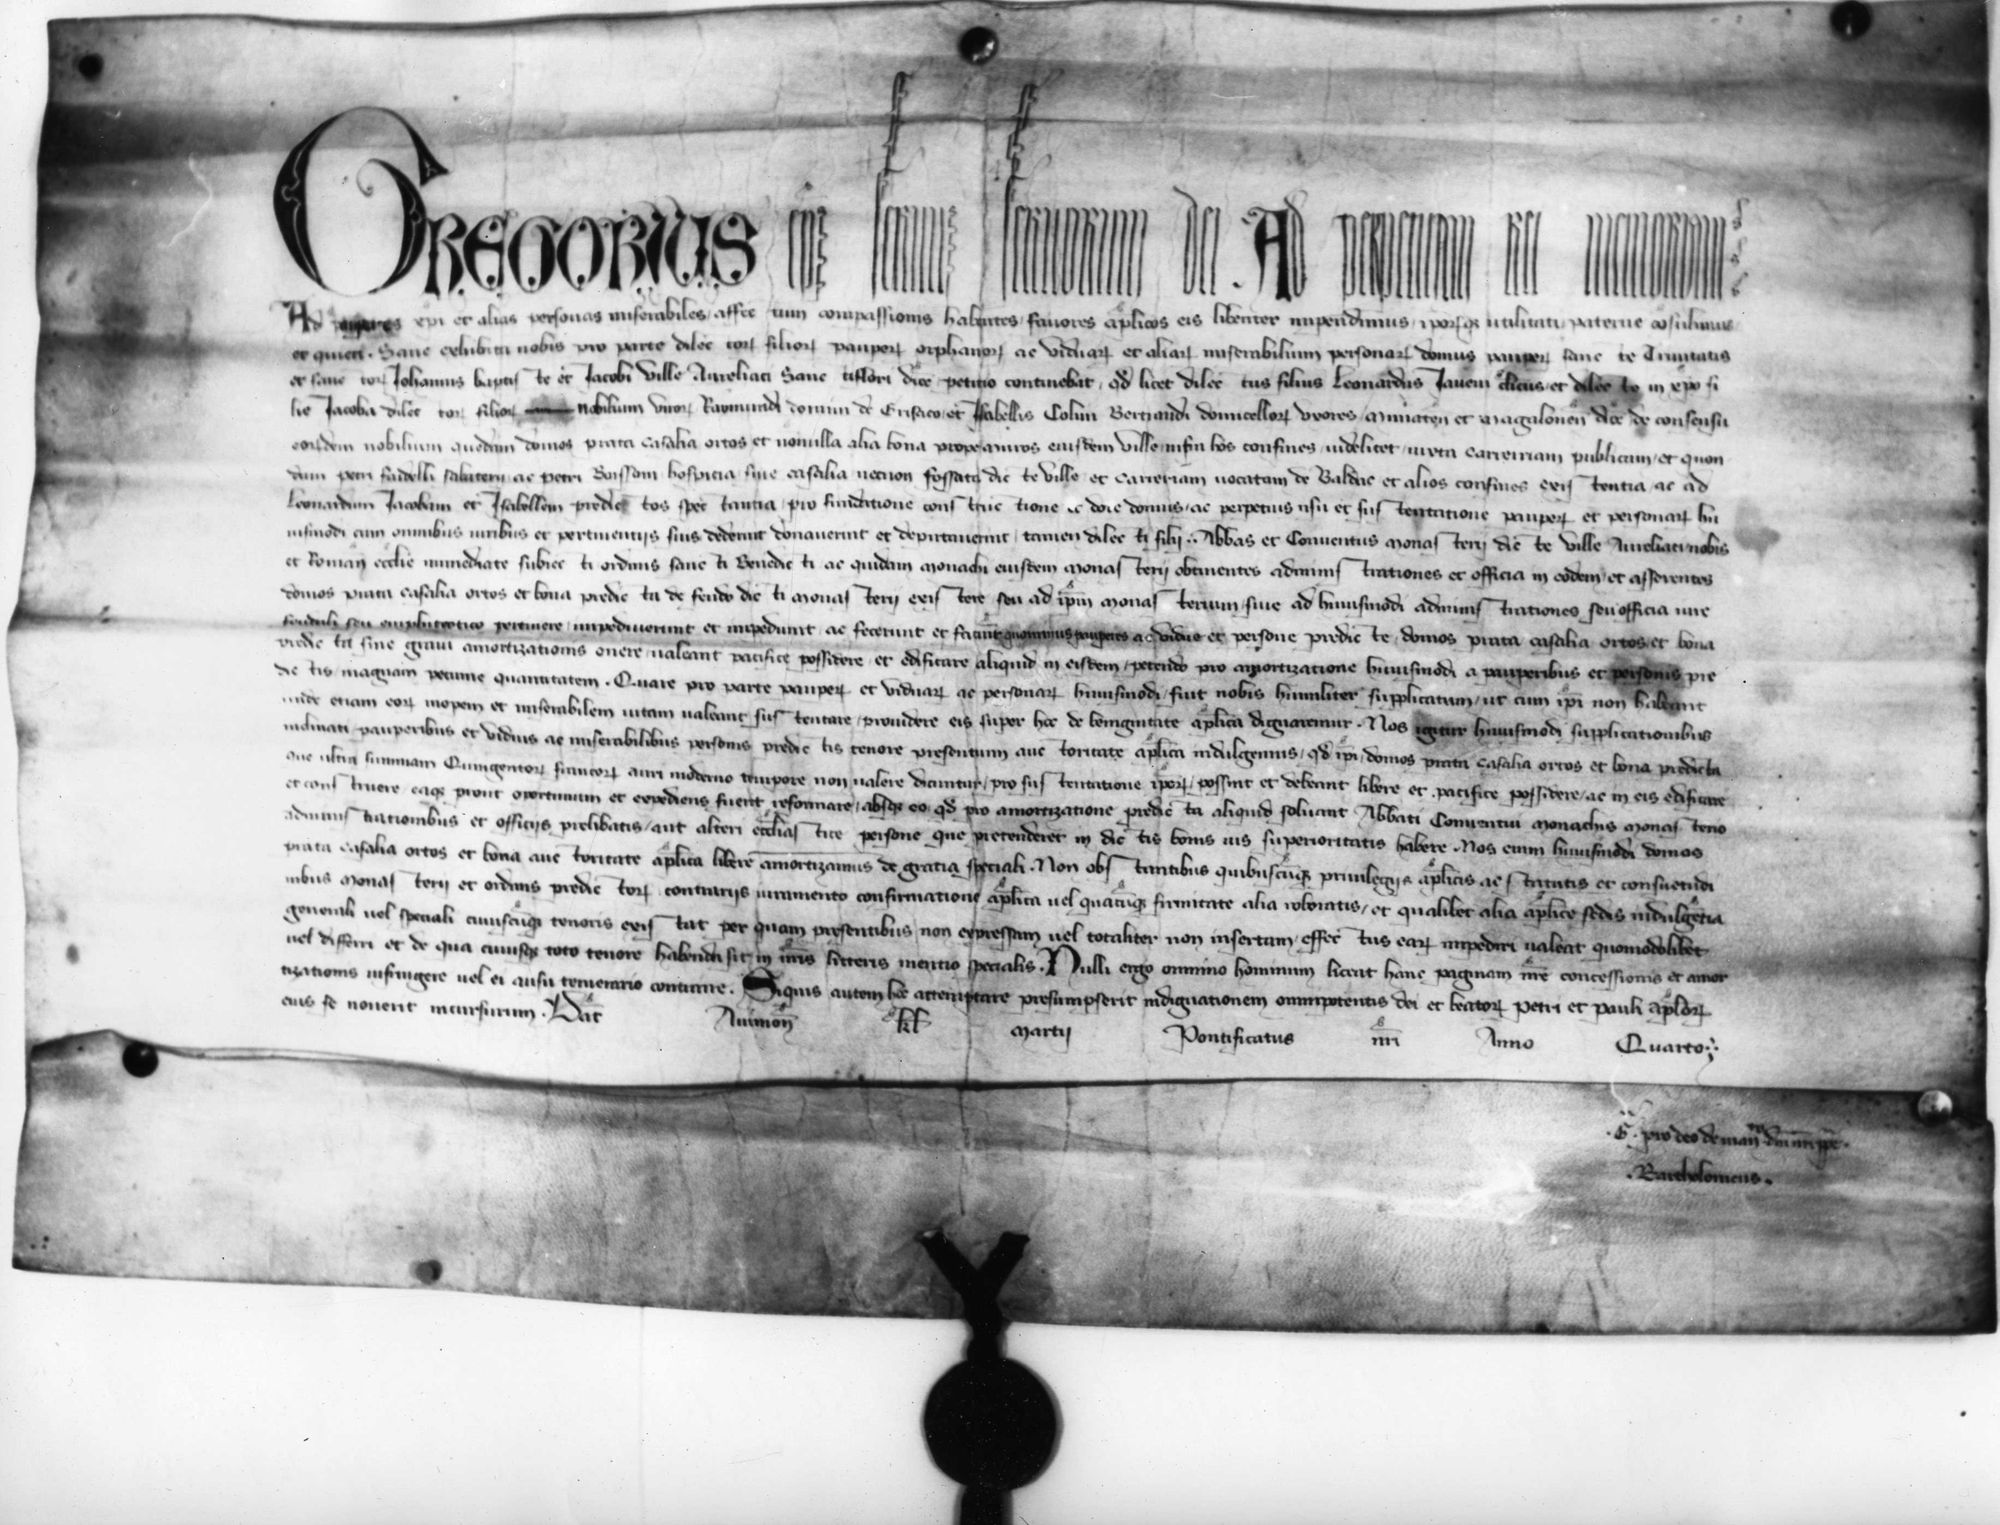 GREGORIUS ep̄s servus servorum dei. Ad perpetuam rei memoriam
Ad pauperes xp̄i et alias personas miserabiles affectum compassionis habentes favores ap̄licos eis libenter impendimus ipor̄q̄ utilitati paterne cōsulimus
et quieti. Sane exhibita nobis pro parte dilectoꝝ filioꝝ pauperꝝ orphanoꝝ ac viduaꝝ et aliaꝝ miserabilium personaꝝ domus pauperꝝ sancte Trinitatis
et sanctoꝝ Johannis baptiste et Jacobi ville Aureliaci Sancti flori dioc̄ petitio continebat qd̄ licet dilectus filius Leonardus clicus et dilecte in xp̄o fi
lie Jacoba dilectoꝝ filioꝝ nobilium viroꝝ Raimundi domini de et Isabellis Colini Bertrandi domicelloꝝ uxores Mimaten̄ et Magalonen̄ dioc̄ de consensu
eorūdem nobilium quedam domos prata casalia ortos et nonnulla alia bona prope muros eiusdem ville infra hos confines videlicet iuxta carreriam publicam et quon
dam petri ac petri Boissoni hospicia sive casalia necnon fossata dicte ville et carreriam vocatam de Baldac et alios confines existentia ac ad
Leonardum Jacobam et Isabellem predictos spectantia pro fundatione constructione et dote domus ac perpetuis usu et sustentatione pauperꝝ et personaꝝ hu
iusmodi cum omnibus iuribus et pertinentijs suis dederint donaverint et deputaverint tamen dilecti filij .. Abbas et Conventus monasterij dicte ville Aureliaci nobis
et Roman̄ ecclie immediate subiecti ordinis sancti Benedicti ac quidam monachi eiusdem monasterij obtinentes administrationes et officia in eodem et asserentes
domos prata casalia ortos et bona predicta de feudo dicti monasterij existere seu ad ip̄m monasterium sive ad huiusmodi administrationes seu officia iure
feudali seu emphiteotico pertinere impediverunt et impediunt ac fecerunt et faciunt quominus pauperes ac vidue et persone predicte domos prata casalia ortos et bona
predicta sine gravi amortizationis onere valeant pacifice possidere et edificare aliquid in eisdem petendo pro amortizatione huiusmodi a pauperibus et personis pre
dictis magnam pecunie quantitatem. Quare pro parte pauperꝝ et viduaꝝ ac personaꝝ huiusmodi fuit nobis humiliter supplicatum ut cum ip̄i non habeant
unde etiam eoꝝ inopem et miserabilem vitam valeant sustentare providere eis super hoc de benignitate ap̄lica dignaremur. Nos igitur huiusmodi supplicationibus
inclinati pauperibus et viduis ac miserabilibus personis predictis tenore presentium auctoritate ap̄lica indulgemus qd̄ ip̄i domos prata casalia ortos et bona predicta
que ultra summam Quingentoꝝ francoꝝ auri moderno tempore non valere dicuntur pro sustentatione ip̄oꝝ possint et debeant libere et pacifice possidere ac in eis edificare
et construere eaqꝫ prout oportunum et expediens fuerit reformare absqꝫ eo qd̄ pro amortizatione predicta aliquid solvant Abbati Conventui monachis monasterio
administrationibus et officijs prelibatis aut alteri ecclesiastice persone que pretenderet in dictis bonis ius superioritatis habere. Nos enim huiusmodi domos
prata casalia ortos et bona auctoritate ap̄lica libere amortizamus de gratia speciali. Non obstantibus quibuscūqꝫ privilegijs ap̄licis ac statutis et consuetudi
nibus monasterij et ordinis predictoꝝ contrarijs iuramento confirmatione ap̄lica vel quacūqꝫ firmitate alia roboratis et qualibet alia ap̄lice sedis indulgētia
generali vel speciali cuiuscūqꝫ tenoris existat per quam presentibus non expressam vel totaliter non insertam effectus eaꝝ impediri valeat quomodolibet
vel differri et de qua cuiusqꝫ toto tenore habenda sit in nr̄is litteris mentio specialis. Nulli ergo omnino hominum liceat hanc paginam nr̄e concessionis et amor
tizationis infringere vel ei ausu temerario contraire. Siquis autem hoc attemptare presumpserit indignationem omnipotentis dei et beatoꝝ Petri et Pauli ap̄loꝝ
eius se noverit incursurum. Dat̄ Avinion̄ kl̄ martij Pontificatus nr̄i Anno Quarto
pro deo de man̄ dn̄i nr̄i pp̄e.
.Bartholomeus.